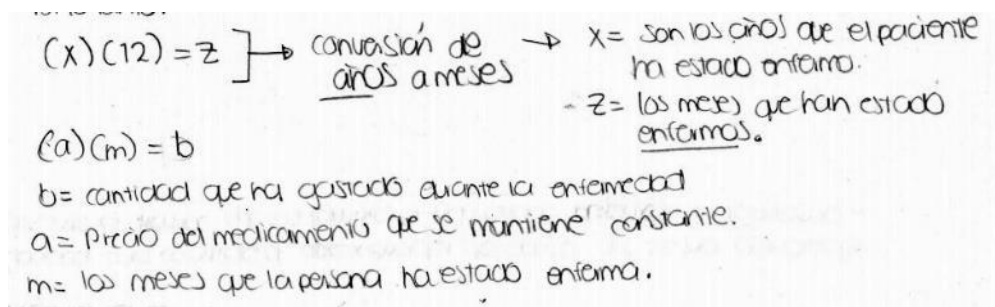 (x)(12) = z ] → conversión de años a meses → x = son los años que el paciente ha estado enfermo.
- z = los meses que han estado enfermos.
(a)(m) = b
b = cantidad que ha gastado durante la enfermedad
a = precio del medicamento que se mantiene constante.
m = los meses que la persona ha estado enferma.